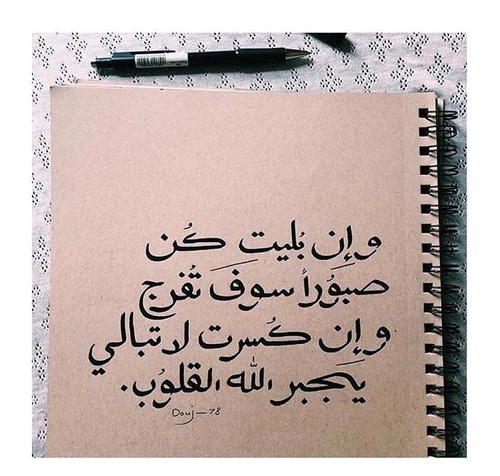 وإن بُليت كُن
صبَوُراً سوفَ تُفرج
وإن كُسرت لا تبالي
يَجبر الله القلوُب.
Douj-78